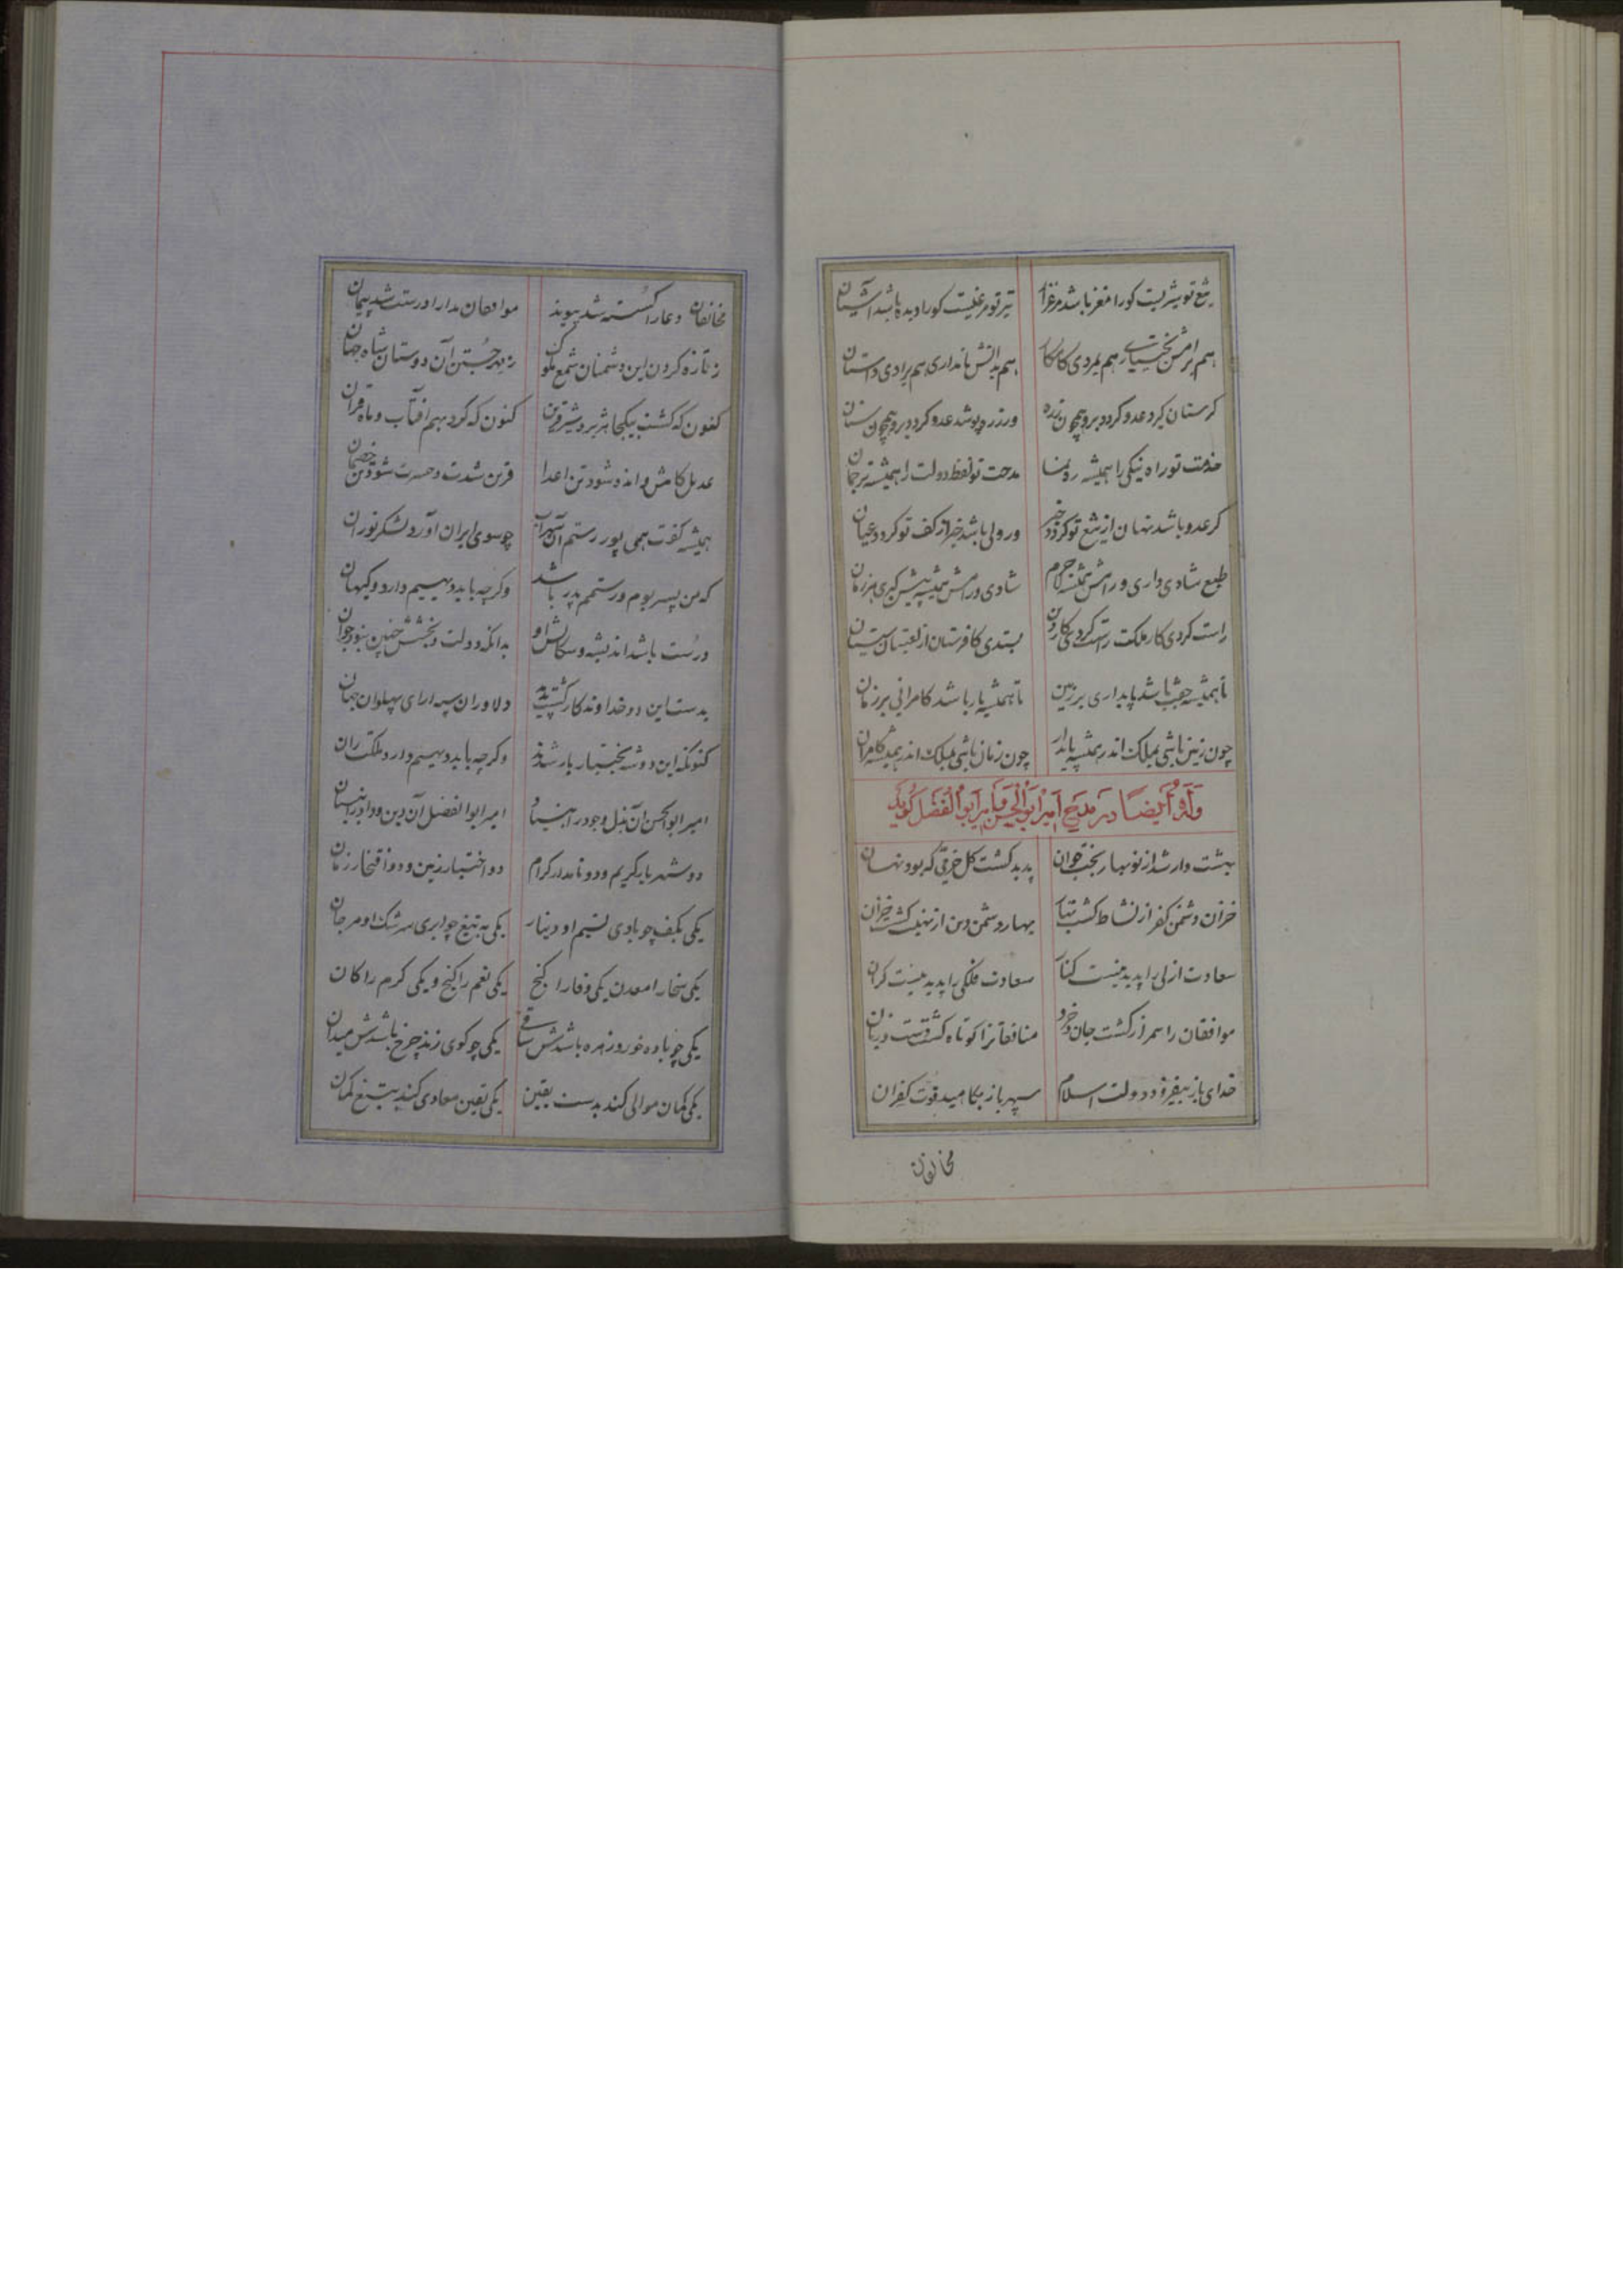 تیغ تو شیریست کورا مغز باشد مرغزار تیر تو مرغیست کورا دیده باشد آشیان
هم برامش بختیاری هم بمردی کامکار هم بدانش نامداری هم برادی داستان
گر سنان گیرد عدو گردد برو همچون زره ور زره پوشد عدو گردد برو همچون سنان
خدمت تو راه نیکی را همیشه رهنما مدحت تو لفظ دولت را همیشه ترجمان
گر عدو باشد نهان از تیغ تو گردد خبر ور ولی باشد خبر از کف تو گردد عیان
طبع شادی داری و رامش همیشه خرم شادی و رامش همیشه پیش گیری هر زمان
راست کردی کار ملکت راست کردی کار دین بستدی کافرستان از لعبتان سیستان
تا همیشه جفت باشد پایداری بر زمین تا همیشه یار باشد کامرانی بر زمان
چون زمین باشی بملک اندر همیشه پایدار چون زمان باشی بملک اندر همیشه کامران
وله ایضا در مدح امیر ابوالحسن و امیر ابوالفضل گوید
بهشت وار شد از نو بهار بخت جوان پدید گشت گل خرمی که بود نهان
خزان دشمن کفر از نشاط گشت بهار بهار دشمن دین از نهیب گشت خزان
سعادت ازلی را پدید نیست کنار سعادت فلکی را پدید نیست کران
موافقان را سمر از گشت جان و خرد منافقانرا کوتاه گشت دست و زبان
خدای باز بیفزود دولت اسلام سپهر باز بکاهید قوت کفران
مخالفان
مخالفان دعا را گسسته شد پیوند موافقان مدارا درست شد پیمان
ز تازه کردن این دشمنان شمع ملوک ز مهر جستن آن دوستان شاه جهان
کنون که گشت بیکجا هژبر و شیر قرین کنون که کرد بهم آفتاب و ماه قران
عدیل کامش و انده شود تن اعدا قرین شدت و حسرت شود تن خصمان
همیشه گفت همی پور رستم آن سهراب چو سوی ایران آورد لشکر توران
که من پسر بوم و رستمم پدر باشد دگر چه باید دیهیم دار در گیهان
درست باشد اندیشه و سگالش او بدانکه دولت و بختش چنین نبود جوان
بدست این دو خداوند کار گشت پدید دلاوران سپه ارای پهلوان جهان
کنونکه این دو شه بختیار یار شدند دگر چه باید دیهیم دار و ملکت ران
امیر ابوالحسن آن بذل و جود را بنیاد امیر ابوالفضل آن دین و داد را بنیان
دو شهریار کریم و دو نامدار کرام دو اختیار زمین و دو افتخار زمان
یکی بکف چو بادی نسیم او دینار یکی به تیغ چو ابری سرشک او مرجان
یکی سخا را معدن یکی وفا را گنج یکی نعم را گنج و یکی کرم را کان
یکی چو باده خورد زهره باشدش ساقی یکی چو گوی زند چرخ باشدش میدان
یکی گمان موالی کند بدست یقین یکی یقین معادی کند بتیغ گمان